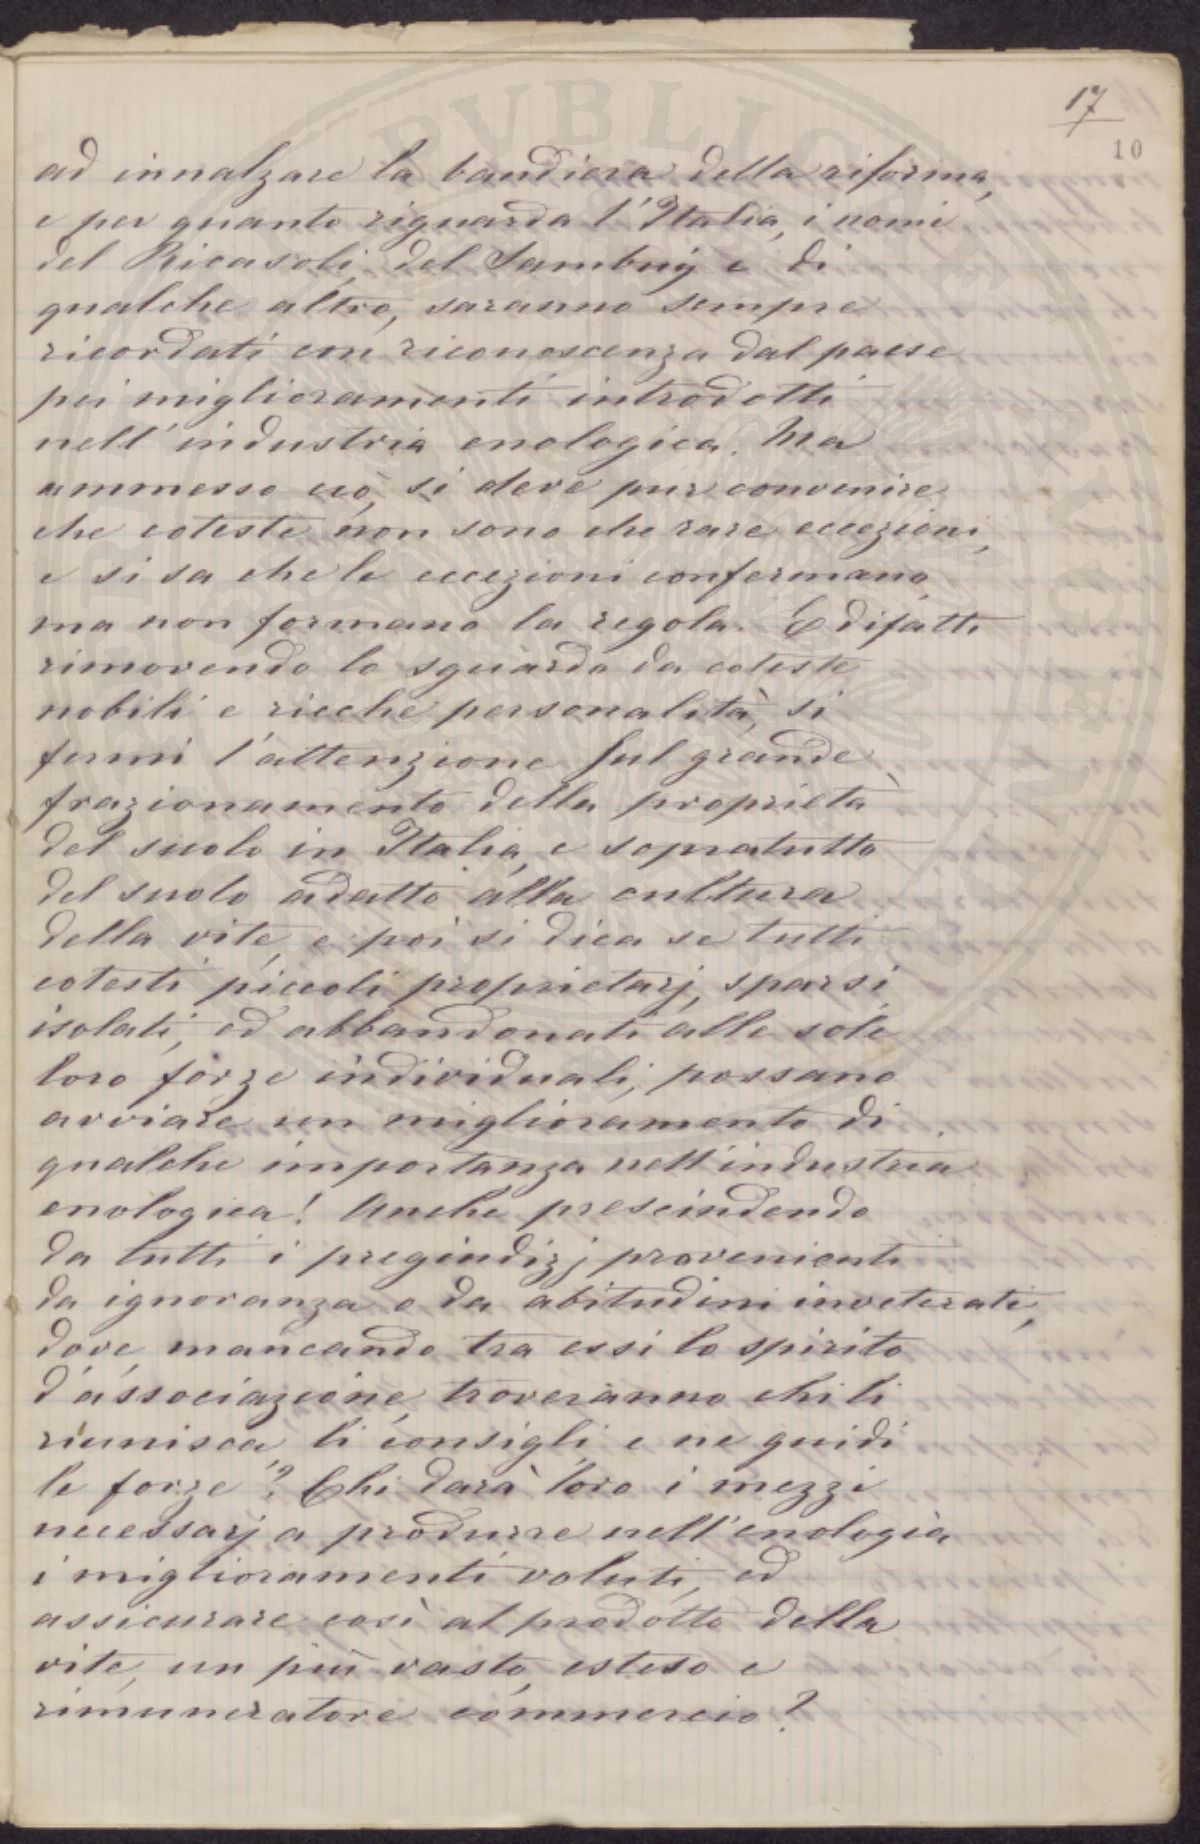 17
10
ad innalzare la bandiera della riforma,
e per quanto riguarda l'Italia, i nomi
del Ricasoli, del Sambuy e di
qualche altro, saranno sempre
ricordati con riconoscenza dal paese
pei miglioramenti introdotti
nell'industria enologica. Ma
ammesso ciò, si deve pur convenire
che coteste non sono che rare eccezioni,
e si sa che le eccezioni confermano,
ma non formano la regola. E difatti
rimovendo lo sguardo da coteste
nobili e ricche personalità, si
fermi l'attenzione sul grande
frazionamento della proprietà
del suolo in Italia, e sopratutto
del suolo adatto alla cultura
della vite, e poi si dica se tutti
cotesti piccoli proprietarj, sparsi,
isolati, ed abbandonati alle sole
loro forze individuali, possano
avviare un miglioramento di
qualche importanza nell'industria
enologica! Anche prescindendo
da tutti i pregiudizj provenienti
da ignoranza o da abitudini inveterate,
dove, mancando tra essi lo spirito
d'associazione, troveranno chi li
riunisca, li consigli, e ne guidi
le forze? Chi darà loro i mezzi
necessarj a produrre nell'enologia
i miglioramenti voluti, ed
assicurare così al prodotto della
vite, un più vasto, esteso e
rimuneratore commercio?